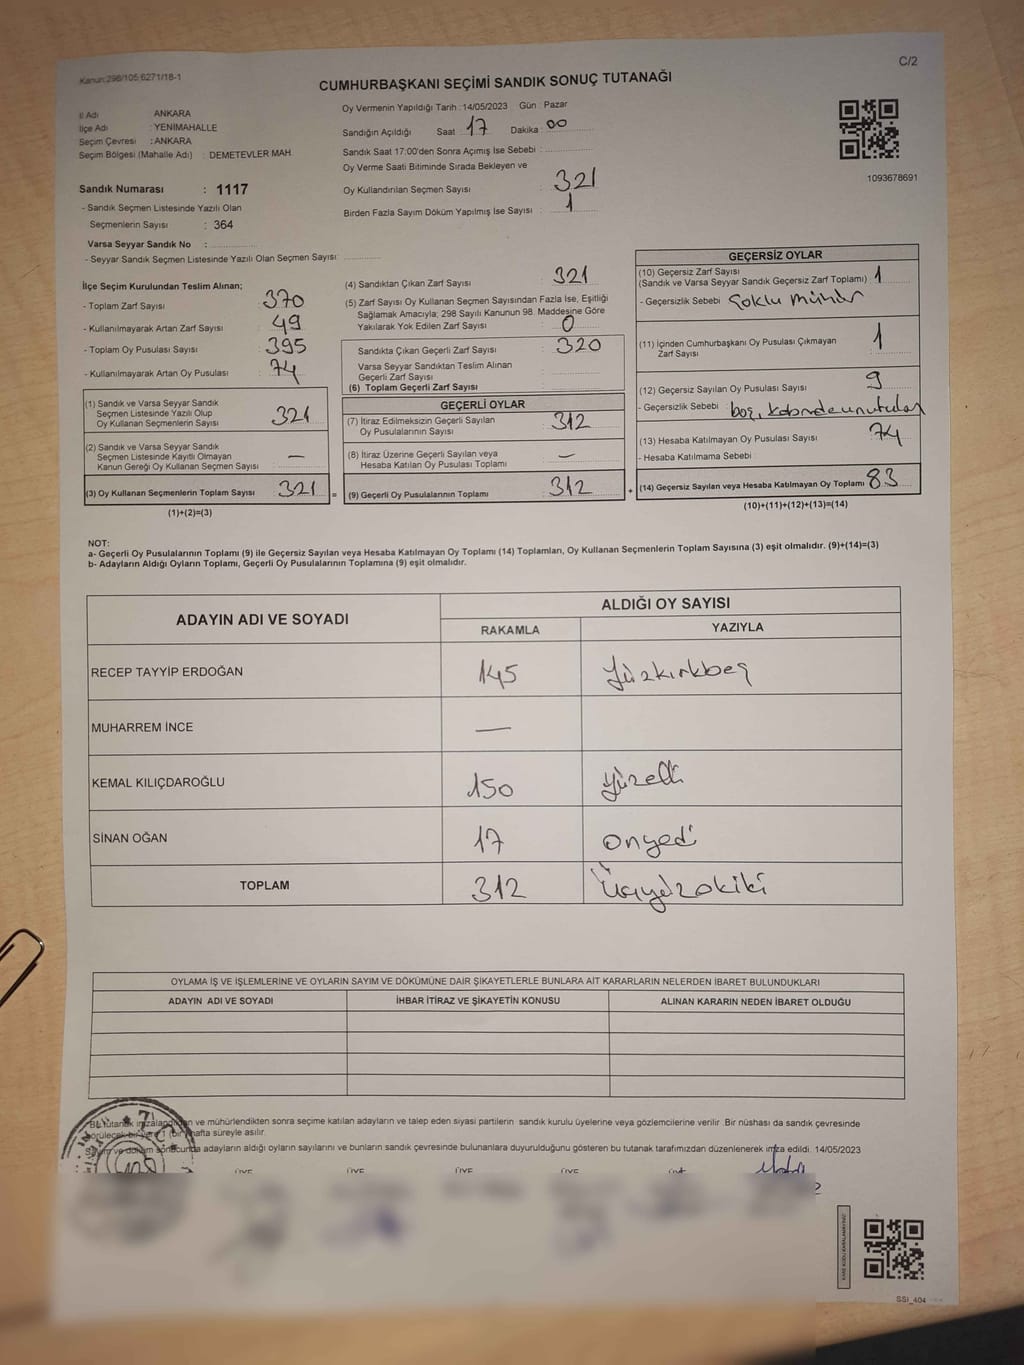 Kanun:298/105;6271/18-1
C/2
CUMHURBAŞKANI SEÇİMİ SANDIK SONUÇ TUTANAĞI
İl Adı ANKARA
İlçe Adı : YENİMAHALLE
Seçim Çevresi : ANKARA
Seçim Bölgesi (Mahalle Adı) : DEMETEVLER MAH
Sandık Numarası : 1117
- Sandık Seçmen Listesinde Yazılı Olan
Seçmenlerin Sayısı : 364
Varsa Seyyar Sandık No :
- Seyyar Sandık Seçmen Listesinde Yazılı Olan Seçmen Sayısı:
Oy Vermenin Yapıldığı Tarih : 14/05/2023 Gün : Pazar
Sandığın Açıldığı Saat : 17 Dakika : 00
Sandık Saat 17:00'den Sonra Açımış İse Sebebi :
Oy Verme Saati Bitiminde Sırada Bekleyen ve
Oy Kullandırılan Seçmen Sayısı : 321
Birden Fazla Sayım Döküm Yapılmış İse Sayısı : 1
1093678691
İlçe Seçim Kurulundan Teslim Alınan;
- Toplam Zarf Sayısı : 370
- Kullanılmayarak Artan Zarf Sayısı : 49
- Toplam Oy Pusulası Sayısı : 395
- Kullanılmayarak Artan Oy Pusulası : 74
(1) Sandık ve Varsa Seyyar Sandık
Seçmen Listesinde Yazılı Olup
Oy Kullanan Seçmenlerin Sayısı : 321
(2) Sandık ve Varsa Seyyar Sandık
Seçmen Listesinde Kayıtlı Olmayan
Kanun Gereği Oy Kullanan Seçmen Sayısı : —
(3) Oy Kullanan Seçmenlerin Toplam Sayısı : 321 =
(1)+(2)=(3)
(4) Sandıktan Çıkan Zarf Sayısı : 321
(5) Zarf Sayısı Oy Kullanan Seçmen Sayısından Fazla İse, Eşitliği
Sağlamak Amacıyla; 298 Sayılı Kanunun 98. Maddesine Göre
Yakılarak Yok Edilen Zarf Sayısı : 0
Sandıkta Çıkan Geçerli Zarf Sayısı : 320
Varsa Seyyar Sandıktan Teslim Alınan
Geçerli Zarf Sayısı :
(6) Toplam Geçerli Zarf Sayısı :
GEÇERLİ OYLAR
(7) İtiraz Edilmeksizin Geçerli Sayılan
Oy Pusulalarının Sayısı : 312
(8) İtiraz Üzerine Geçerli Sayılan veya
Hesaba Katılan Oy Pusulası Toplamı : —
(9) Geçerli Oy Pusulalarının Toplamı : 312 +
GEÇERSİZ OYLAR
(10) Geçersiz Zarf Sayısı
(Sandık ve Varsa Seyyar Sandık Geçersiz Zarf Toplamı) : 1
- Geçersizlik Sebebi : Çoklu mühür
(11) İçinden Cumhurbaşkanı Oy Pusulası Çıkmayan
Zarf Sayısı : 1
(12) Geçersiz Sayılan Oy Pusulası Sayısı : 9
- Geçersizlik Sebebi : boş, kabinde unutulan
(13) Hesaba Katılmayan Oy Pusulası Sayısı : 74
- Hesaba Katılmama Sebebi
(14) Geçersiz Sayılan veya Hesaba Katılmayan Oy Toplamı : 83
(10)+(11)+(12)+(13)=(14)
NOT:
a- Geçerli Oy Pusulalarının Toplamı (9) ile Geçersiz Sayılan veya Hesaba Katılmayan Oy Toplamı (14) Toplamları, Oy Kullanan Seçmenlerin Toplam Sayısına (3) eşit olmalıdır. (9)+(14)=(3)
b- Adayların Aldığı Oyların Toplamı, Geçerli Oy Pusulalarının Toplamına (9) eşit olmalıdır.
ADAYIN ADI VE SOYADI ALDIĞI OY SAYISI
RAKAMLA YAZIYLA
RECEP TAYYİP ERDOĞAN 145 yüzkırkbeş
MUHARREM İNCE —
KEMAL KILIÇDAROĞLU 150 yüzelli
SİNAN OĞAN 17 onyedi
TOPLAM 312 Üçyüzoniki
OYLAMA İŞ VE İŞLEMLERİNE VE OYLARIN SAYIM VE DÖKÜMÜNE DAİR ŞİKAYETLERLE BUNLARA AİT KARARLARIN NELERDEN İBARET BULUNDUKLARI
ADAYIN ADI VE SOYADI İHBAR İTİRAZ VE ŞİKAYETİN KONUSU ALINAN KARARIN NEDEN İBARET OLDUĞU
Bu tutanak imzalandıktan ve mühürlendikten sonra seçime katılan adayların ve talep eden siyasi partilerin sandık kurulu üyelerine veya gözlemcilerine verilir. Bir nüshası da sandık çevresinde
görülecek bir yere 1 (bir) hafta süreyle asılır.
Sayım ve döküm sonucunda adayların aldığı oyların sayılarını ve bunların sandık çevresinde bulunanlara duyurulduğunu gösteren bu tutanak tarafımızdan düzenlenerek imza edildi. 14/05/2023
SSI_404